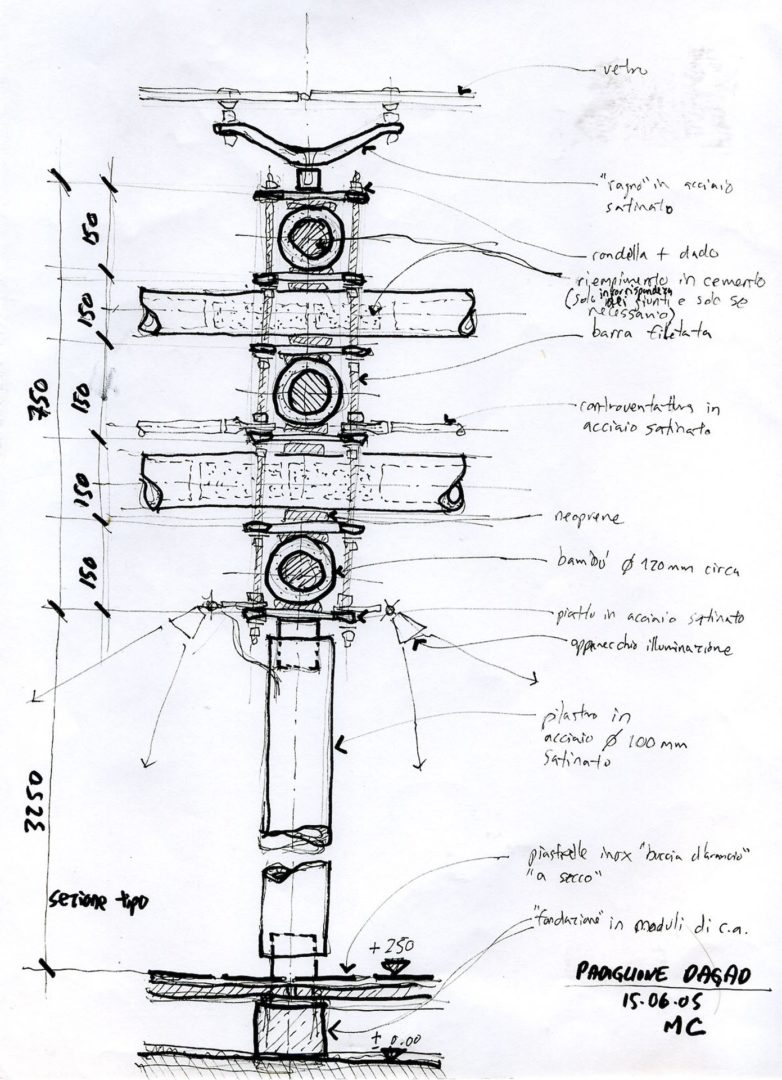 vetro
"ragno" in acciaio
satinato
rondella + dado
riempimento in cemento
(solo in corrispondenza
dei giunti e solo se
necessario)
barra filettata
controventatura in
acciaio satinato
neoprene
bambu' Ø 120mm circa
piatto in acciaio satinato
apparecchio illuminazione
pilastro in
acciaio Ø 100mm
satinato
piastrelle inox "buccia d'arancio"
"a secco"
"fondazione" in moduli di c.a.
150
150
150
150
150
750
3250
sezione tipo
+250
± 0.00
PADIGLIONE DAGAD
15.06.05
MC